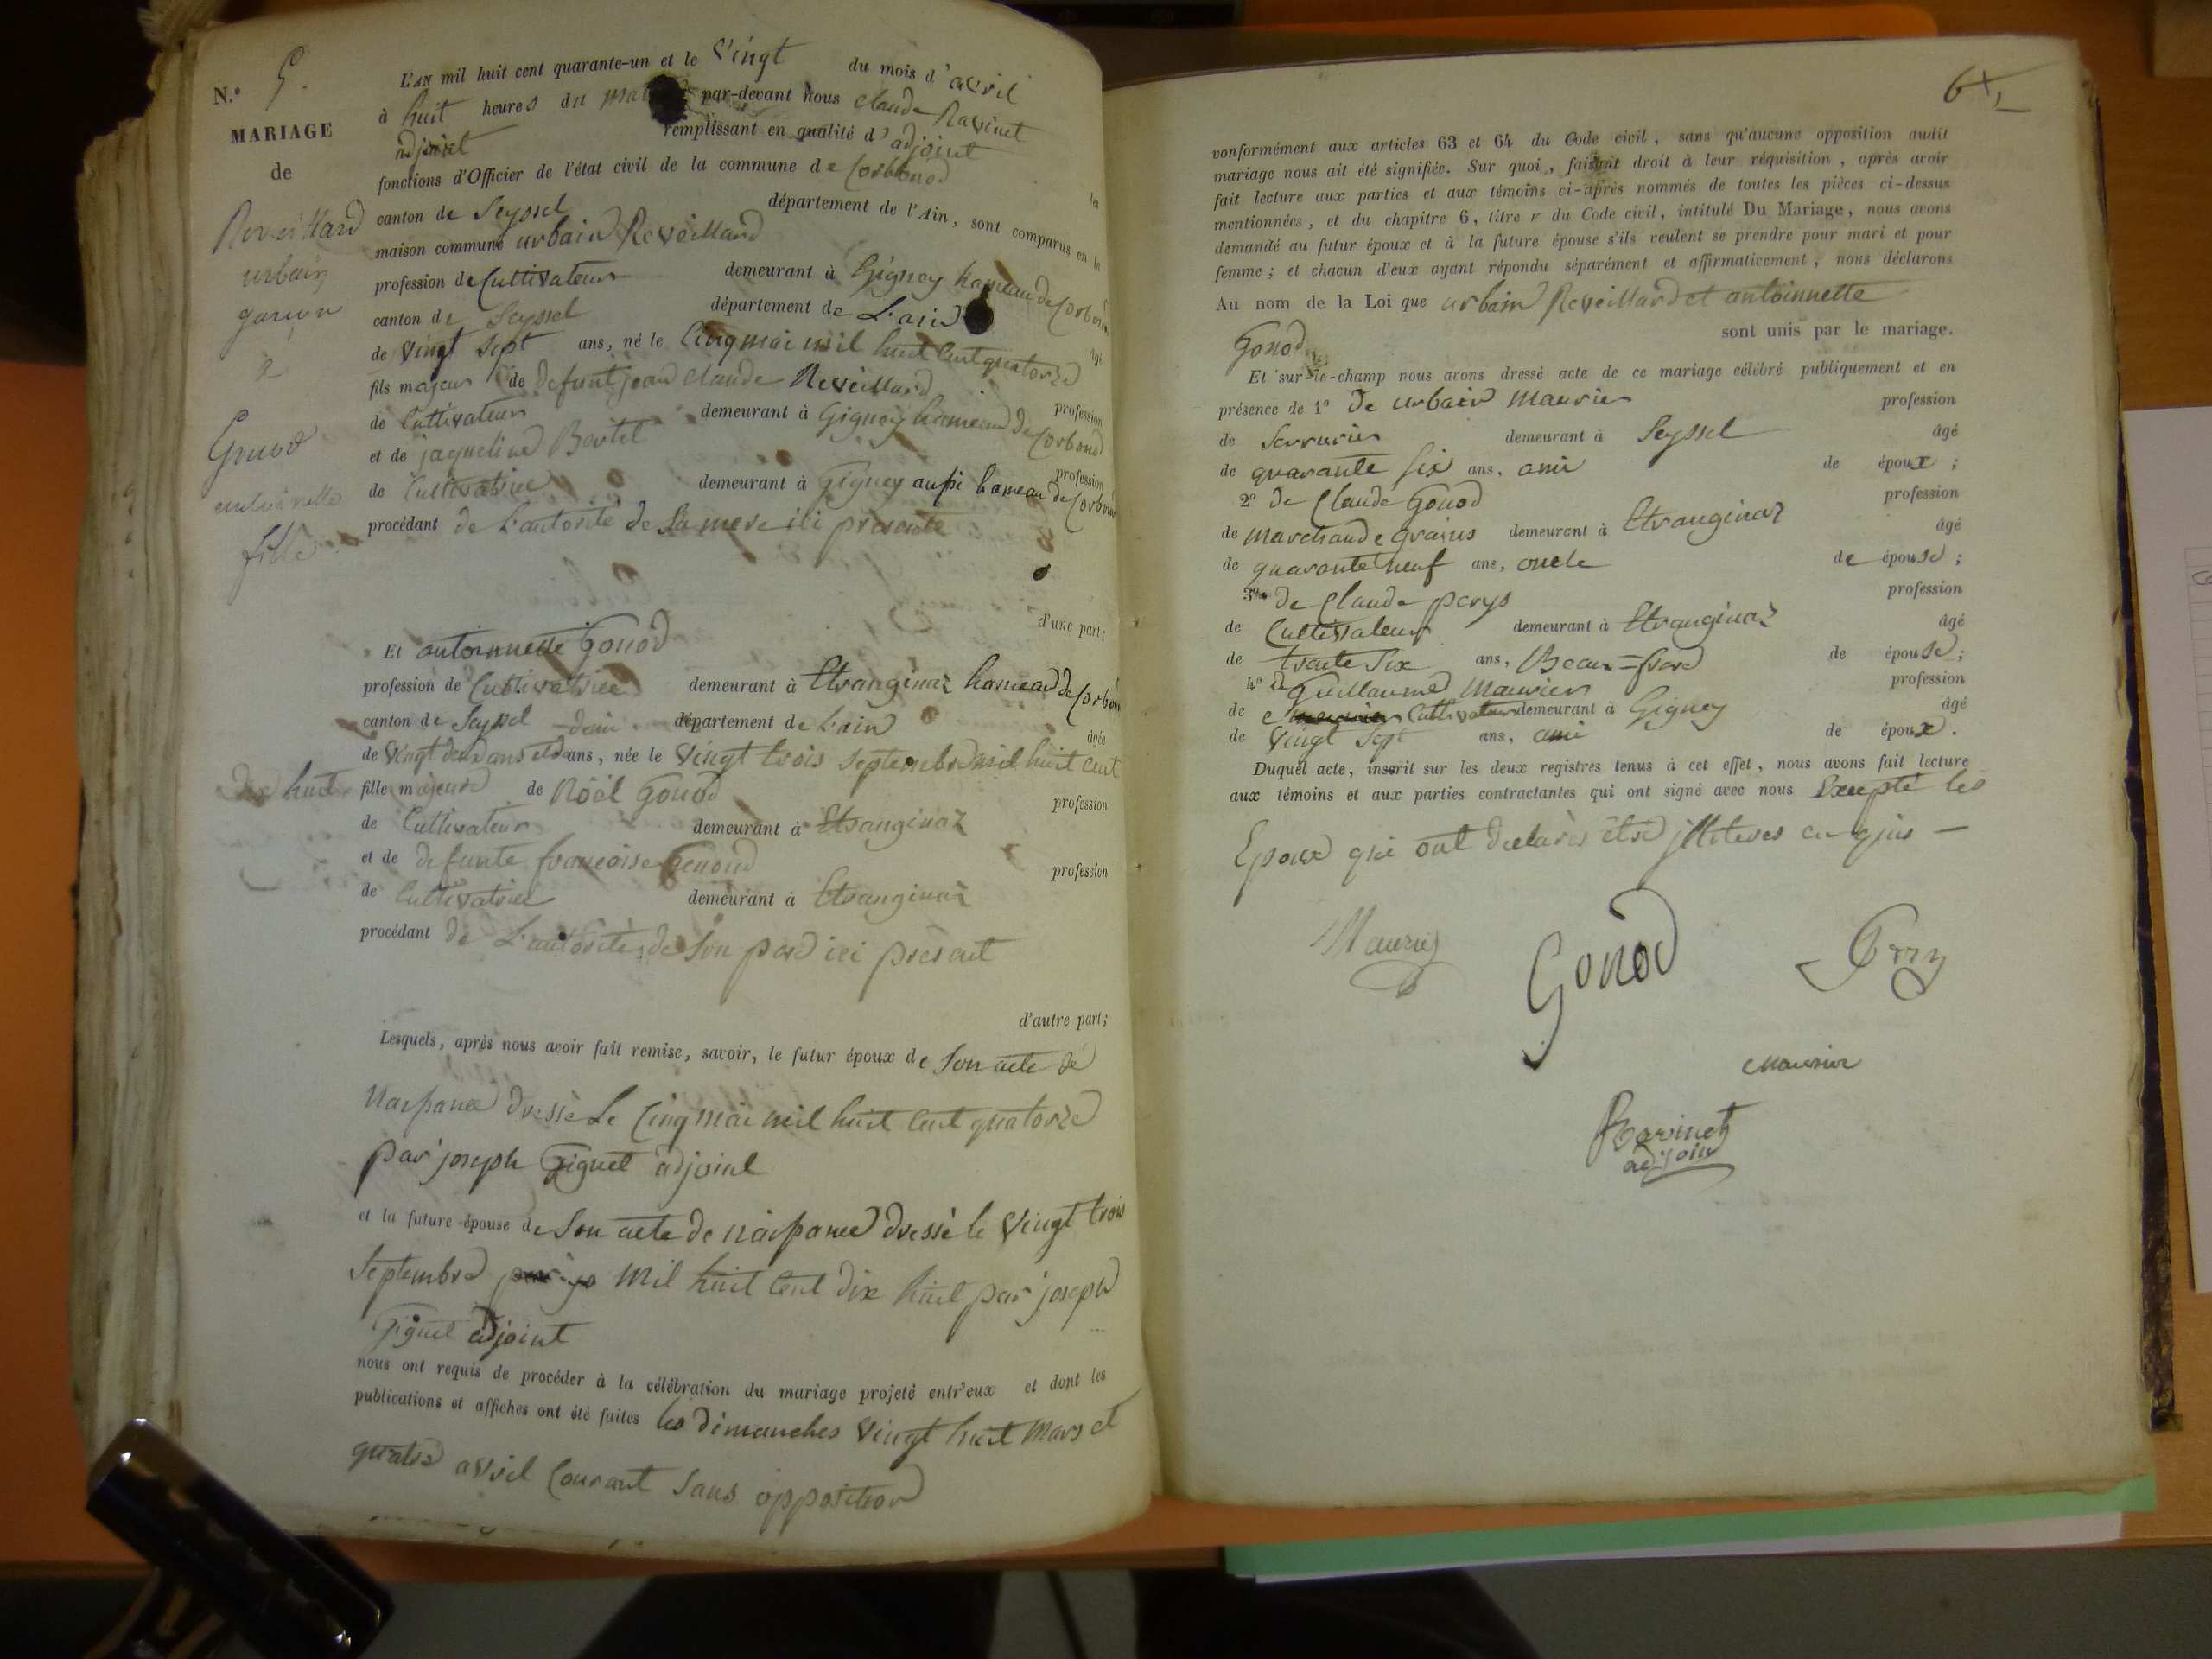 N.° 5.
MARIAGE
de
Reveillard
urbain
garçon
&
Gonod
antoinette
fille
L'AN mil huit cent quarante-un et le Vingt du mois d'avril
à huit heures du par-devant nous Claude Ravinet
adjoint remplissant en qualité d'adjoint
les
fonctions d'Officier de l'état civil de la commune de Corbonod
canton de Seyssel département de l'Ain, sont comparus en la
maison commune urbain Reveillard
profession de Cultivateur demeurant à Gigney hameau de Corbonod
canton de Seyssel département de L'ain âgé
de Vingt Sept ans, né le Cinq mai mil huit Cent quatorze
fils majeur de defunt jean Claude Reveillard profession
de Cultivateur demeurant à Gigney hameau de Corbonod
et de jaqueline Bertel profession
de Cultivatrice demeurant à Gigney aussi hameau de Corbonod
procédant de L'autorité de Sa mere ici présente
d'une part;
Et antoinnette Gonod
profession de Cultivatrice demeurant à Etranginaz hameau de Corbonod
canton de Seyssel département de L'ain âgée
de Vingt deux ans et demi ans, née le Vingt trois Septembre mil huit cent
dix huit fille majeure de Noël Gonod profession
de Cultivateur demeurant à Etranginaz
et de defunte françoise profession
de Cultivatrice demeurant à Etranginaz
procédant de L'autorité de Son pere ici présent
d'autre part;
Lesquels, après nous avoir fait remise, savoir, le futur époux de Son acte de
Naissance dressé Le Cinq mai mil huit Cent quatorze
par joseph adjoint
et la future épouse de Son acte de naissance dressé le Vingt trois
Septembre Mil huit Cent dix huit par joseph
adjoint
nous ont requis de procéder à la célébration du mariage projeté entr'eux et dont les
publications et affiches ont été faites les dimanches Vingt huit Mars et
quatre avril Courant Sans opposition
64
conformément aux articles 63 et 64 du Code civil, sans qu'aucune opposition audit
mariage nous ait été signifiée. Sur quoi, faisant droit à leur réquisition, après avoir
fait lecture aux parties et aux témoins ci-après nommés de toutes les pièces ci-dessus
mentionnées, et du chapitre 6, titre v du Code civil, intitulé Du Mariage, nous avons
demandé au futur époux et à la future épouse s'ils veulent se prendre pour mari et pour
femme; et chacun d'eux ayant répondu séparément et affirmativement, nous déclarons
Au nom de la Loi que urbain Reveillard et antoinnette
Gonod sont unis par le mariage.
Et sur-le-champ nous avons dressé acte de ce mariage célébré publiquement et en
présence de 1° de urbain Maurier profession
de Serrurier demeurant à Seyssel âgé
de quarante Six ans, ami de époux;
2° de Claude Gonod profession
de Marchand de grains demeurant à Etranginaz âgé
de quarante neuf ans, oncle de épouse;
3° de Claude perys profession
de Cultivateur demeurant à Etranginaz âgé
de trente Six ans, Beau=frere de épouse;
4° de Guillaume Maurier profession
de Cultivateur demeurant à Gigney âgé
de Vingt Sept ans, ami de époux.
Duquel acte, inscrit sur les deux registres tenus à cet effet, nous avons fait lecture
aux témoins et aux parties contractantes qui ont signé avec nous Excepté les
Epoux qui ont declarés être jlliteres enquis —
Maurier
Gonod
Maurier
Ravinet
adjoint